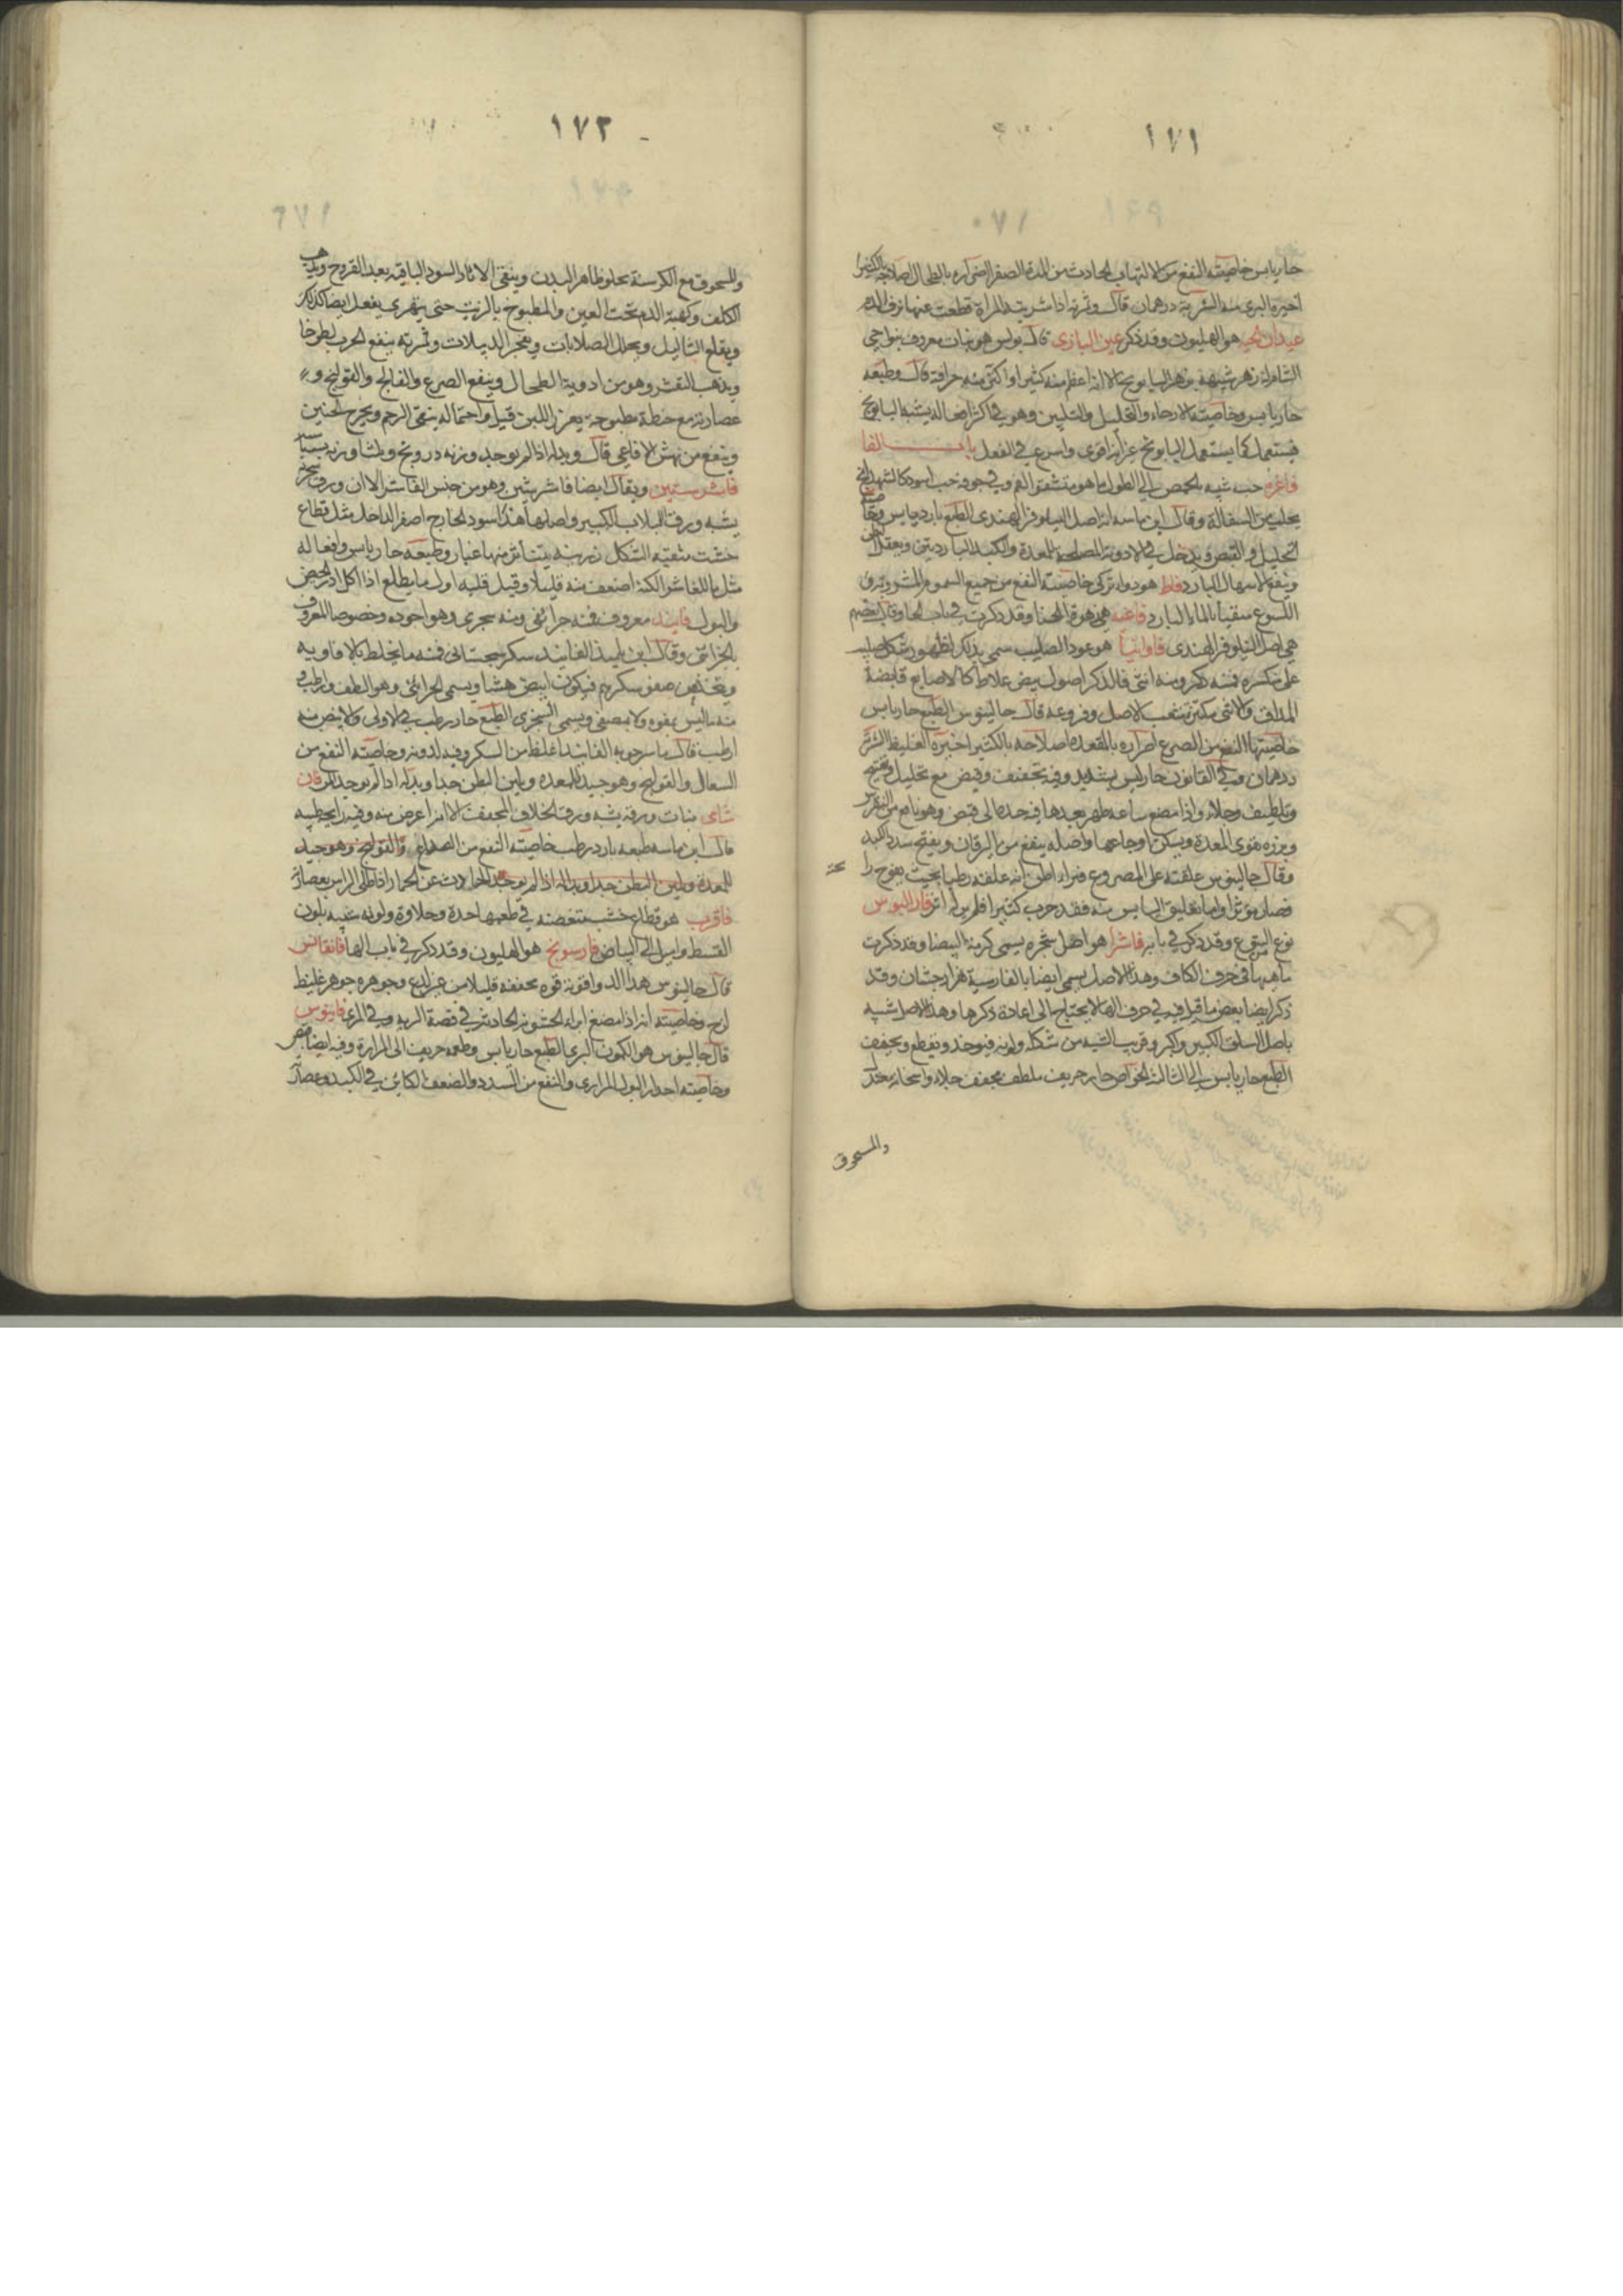 ١٧١
حار يابس خاصيته النفع من الالتهاب الحادث من المدة الصفرا اضراره بالطحال اصلاحه بالكثيرا
اخيره البرى منه الشربة درهمان قال وثمرته اذا شربته المراة قطعت عنها نزف الدم
عيدان الحيه هو الهليون وقد ذكر عين البازى قال بولس هو نبات معروف بنواحى
الشام له زهر شبيه بزهر البابونج الا انه اعظم منه كثيرا واكثر منه حرافة قال وطبعه
حار يابس وخاصيته الارخاء والتحليل والتليين وهو فى اكثر افعاله يشبه البابونج
فيستعمل كما يستعمل البابونج غير انه اقوى واسرع فى الفعل باب الفا
فاغره حب شبيه بالحمص الى الطول ما هو منشقة الفم وفى جوفه حب اسود كالشهدانج
يجلب من السفالة وقال ابن ماسه انه اصل النيلوفر الهندى الطبع بارد يابس وخاصيته
التحليل والقبض ويدخل فى الادوية المصلحة للمعدة والكبد الباردتين ويعقل البطن
وينفع الاسهال البارد فاط هو دواء تركى خاصيته النفع من جميع السموم المشروبة وفى
اللسوع مسقيا بالماء البارد فاغيه هى زهرة الحنا وقد ذكرت فى باب الحا وقال بعضهم
هى اصل النيلوفر الهندى فاوانيا هو عود الصليب سمى بذلك لظهور شكل صليب
على مكسره فمنه ذكر ومنه انثى فالذكر اصول بيض غلاظ كالاصابع قابضة
المذاق والانثى مكثرة شعب الاصل وفروعه قال جالينوس الطبع حار يابس
خاصيتها النفع من الصرع اضراره بالمقعدة اصلاحه بالكثيرا اخيره الغليظ الشربة
درهمان وفى القانون حار ليس بشديد وفيه تجفيف وقبض مع تحليل وتفتيح
وتلطيف وجلاء واذا مضغ ساعه ظهر بعدها فى حدة الى قبض وهو نافع من النقرس
وبزره يقوى المعدة ويسكن اوجاعها واصله ينفع من اليرقان ويفتح سدد الكبد
وقال جالينوس علقته على المصروع فبراء اظن انه علقه رطبا بحيث يفوح را
فصار مؤثرا واما تعليق اليابس منه فقد جرب كثيرا فلم ير له اثر فار اليوس
نوع اليتوع وقد ذكر فى بابه فاشرا هو اصل شجره يسمى كرمة البيضا وقد ذكرت
ماهيتها فى حرف الكاف وهذا الاصل يسمى ايضا بالفارسية هزار جشان وقد
ذكر ايضا بعض ما قيل فيه فى حرف الها لا يحتاج الى اعادة ذكرها وهذا الاصل شبيه
باصل السلق الكبير واكبر وقريب الشبه من شكله ولونه فيوخذ ويقطع ويجفف
الطبع حار يابس الى الثالثة الخواص حار حريف ملطف مجفف جلاء واسخانه معتدل
والمسحوق
١٧٢
والمسحوق مع الكرسنة يجلو ظاهر البدن وينقى الاثار السود الباقيه بعد القروح ويذهب
الكلف وكهبة الدم تحت العين والمطبوخ بالزيت حتى يتهرى يفعل ايضا كذلك
ويقلع الثاليل ويحلل الصلابات ويفجر الدبيلات وثمرته ينفع الجرب لطوخا
ويذهب التقشر وهو من ادوية الطحال وينفع الصرع والفالج والقولنج و
عصارته مع حنطة مطبوخة يغزر اللبن قيل واحتماله ينقى الرحم ويخرج الجنين
وينفع من نهش الافاعى قال وبدله اذا لم يوجد وزنه درونج وثلثا وزنه بسباسه
فاشرستين ويقال ايضا فاشرشين وهو من جنس الفاشرا الا ان ورق شجره
يشبه ورق اللبلاب الكبير واصلها هذا اسود الخارج اصفر الداخل مثل قطاع
خشب متقبة الشكل زرينه يتناثر منها غبار وطبيعه حار يابس وافعاله
مثل ما للفاشرا لكنه اضعف منه قليلا وقيل قلبه اول ما يطلع اذا اكل ادر الحيض
والبول فانيد معروف فمنه جزائنى ومنه سجزى وهو اجوده وخصوصا المعروف
بالخزائنى وقال ابن تلميذ الفانيد سكر سجستانى فمنه ما يخلط بالافاويه
ويتخذ من صفو سكرهم فيكون ابيض هشا ويسمى الخزائنى وهو الطف وارطب و
منه ما ليس بمفوه ولا مصفى ويسمى السجزى الطبع حار رطب فى الاولى والابيض منه
ارطب قال ماسرجويه الفانيد اغلظ من السكر وفيه لدونه وخاصيته النفع من
السعال والقولنج وهو جيد للمعده ويلين البطن جدا وبدله اذا لم يوجد سكر فان
شاى نبات ورقه يشبه ورق الخلاف المجفف الا انه اعرض منه وفيه رايحة طيبه
قال ابن ماسه طبعه بارد رطب خاصيته النفع من الصداع والقولنج وهو جيد
للمعدة ويلين البطن جدا وبدله اذا لم يوجد الحادث عن الخمار اذا طلى الراس بعصارته
فاقرب هو قطاع خشب متغضنه فى طعمها حدة وحلاوة ولونه شبيه بلون
القسط واميل الى البياض فارسونج هو الهليون وقد ذكر فى باب الها فانقانس
قال جالينوس هذا الدوا قوته قوه مجففه قليلا من غير لذع وجوهره جوهر غليظ
لزج وخاصيته انه اذا مضغ ابراء الخشونه الحادثه فى قصبة الريه وفى المرى فانيوس
قال جالينوس هو الكمون البرى الطبع حار يابس وطعمه حريف الى المرارة وفيه ايضا قبض
وخاصيته احدار البول المرارى والنفع من السدد والضعف الكائن فى الكبد وعصارته